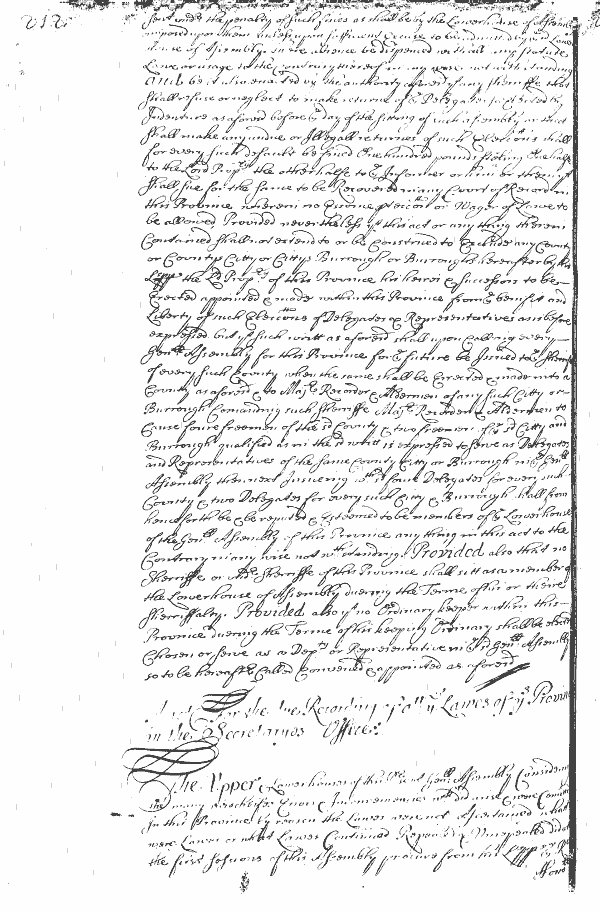 212
sent under the penalty of such fines as shall be by the Lower house of Assembly
imposed upon them unless upon sufficient Excuse to be admitted by the Lower
house of Assembly their absence be dispensed withall any Statute
Law or usage to the contrary thereof in any wise notwithstanding
And be it also enacted by the authority aforesd if any Sheriffe that
shall refuse or neglect to make returne of ye Delegates so elected by
Indenture as aforesd before ye day of the sitting of such assembly or that
shall make any undue or Illegall returnes of such Elections shall
for every such default be fined One hundred pounds sterling One halfe
to the Lord Propry the other halfe to ye Informer or him or them yt
shall sue for the same to be Recovered in any Court of Record in
this Province wherein no Essoine protection or Wager of Law to
be allowed Provided nevertheless yt this act or any thing therein
Contained shall not extend to or be Construed to Exclude any County
or Countys Citty or Cittys Burrough or Burroughs hereafter by his
Lspp the Ld Propry of this Province his heires & successors to be
Erected appointed & made within this Province from ye benefit and
Liberty of such Elections of Delegates & Representatives as is before
expressed but yt such writt as aforesd shall upon Calling every
Genll Assembly for this Province for ye future be Issued to ye Sheriffe
of every such County when the same shall be Erected & made into a
County as aforesd & to Mayr Recorder & Aldermen of any such Citty or
Burrough Comanding such Sheriffe Mayr Recorder & Aldermen to
Cause foure freemen of the sd County & two freemen of ye sd Citty and
Burrough qualified as in the sd writt is expressed to serve as Delegates
and Representatives of the same County Citty or Burrough in ye Genll
Assembly then next Insueing wch sd foure Delegates for every such
County & two Delegates for every such Citty & Burrough shall from
henceforth be & be reputed & Esteemed to be members of ye Lower house
of the Genll Assembly of this Province any thing in this act to the
Contrary in any wise notwthstanding. Provided also that no
Sheriffe or undr Sheriffe of this Province shall sitt as a member of
the Lower house of Assembly dureing the Terme of his or their
Sherriffalty. Provided also yt no Ordinary keeper within this
Province dureing the Terme of his keeping Ordinary shall be elected
Chosen or serve as a Depty or Representative in ye sd Genll Assembly
so to be hereafter Called Convened & appointed as aforesd
An Act for the Recording of all ye Lawes of ys Province
in the Secretarys Office.
The Upper & Lower houses of this Genll Assembly Considering
the many
in this Province by reason the Lawes were not ascertained what
were Lawes or what Lawes Continued Repeald & Unrepealed did at
the first sessions of this Assembly procure from his Lspp